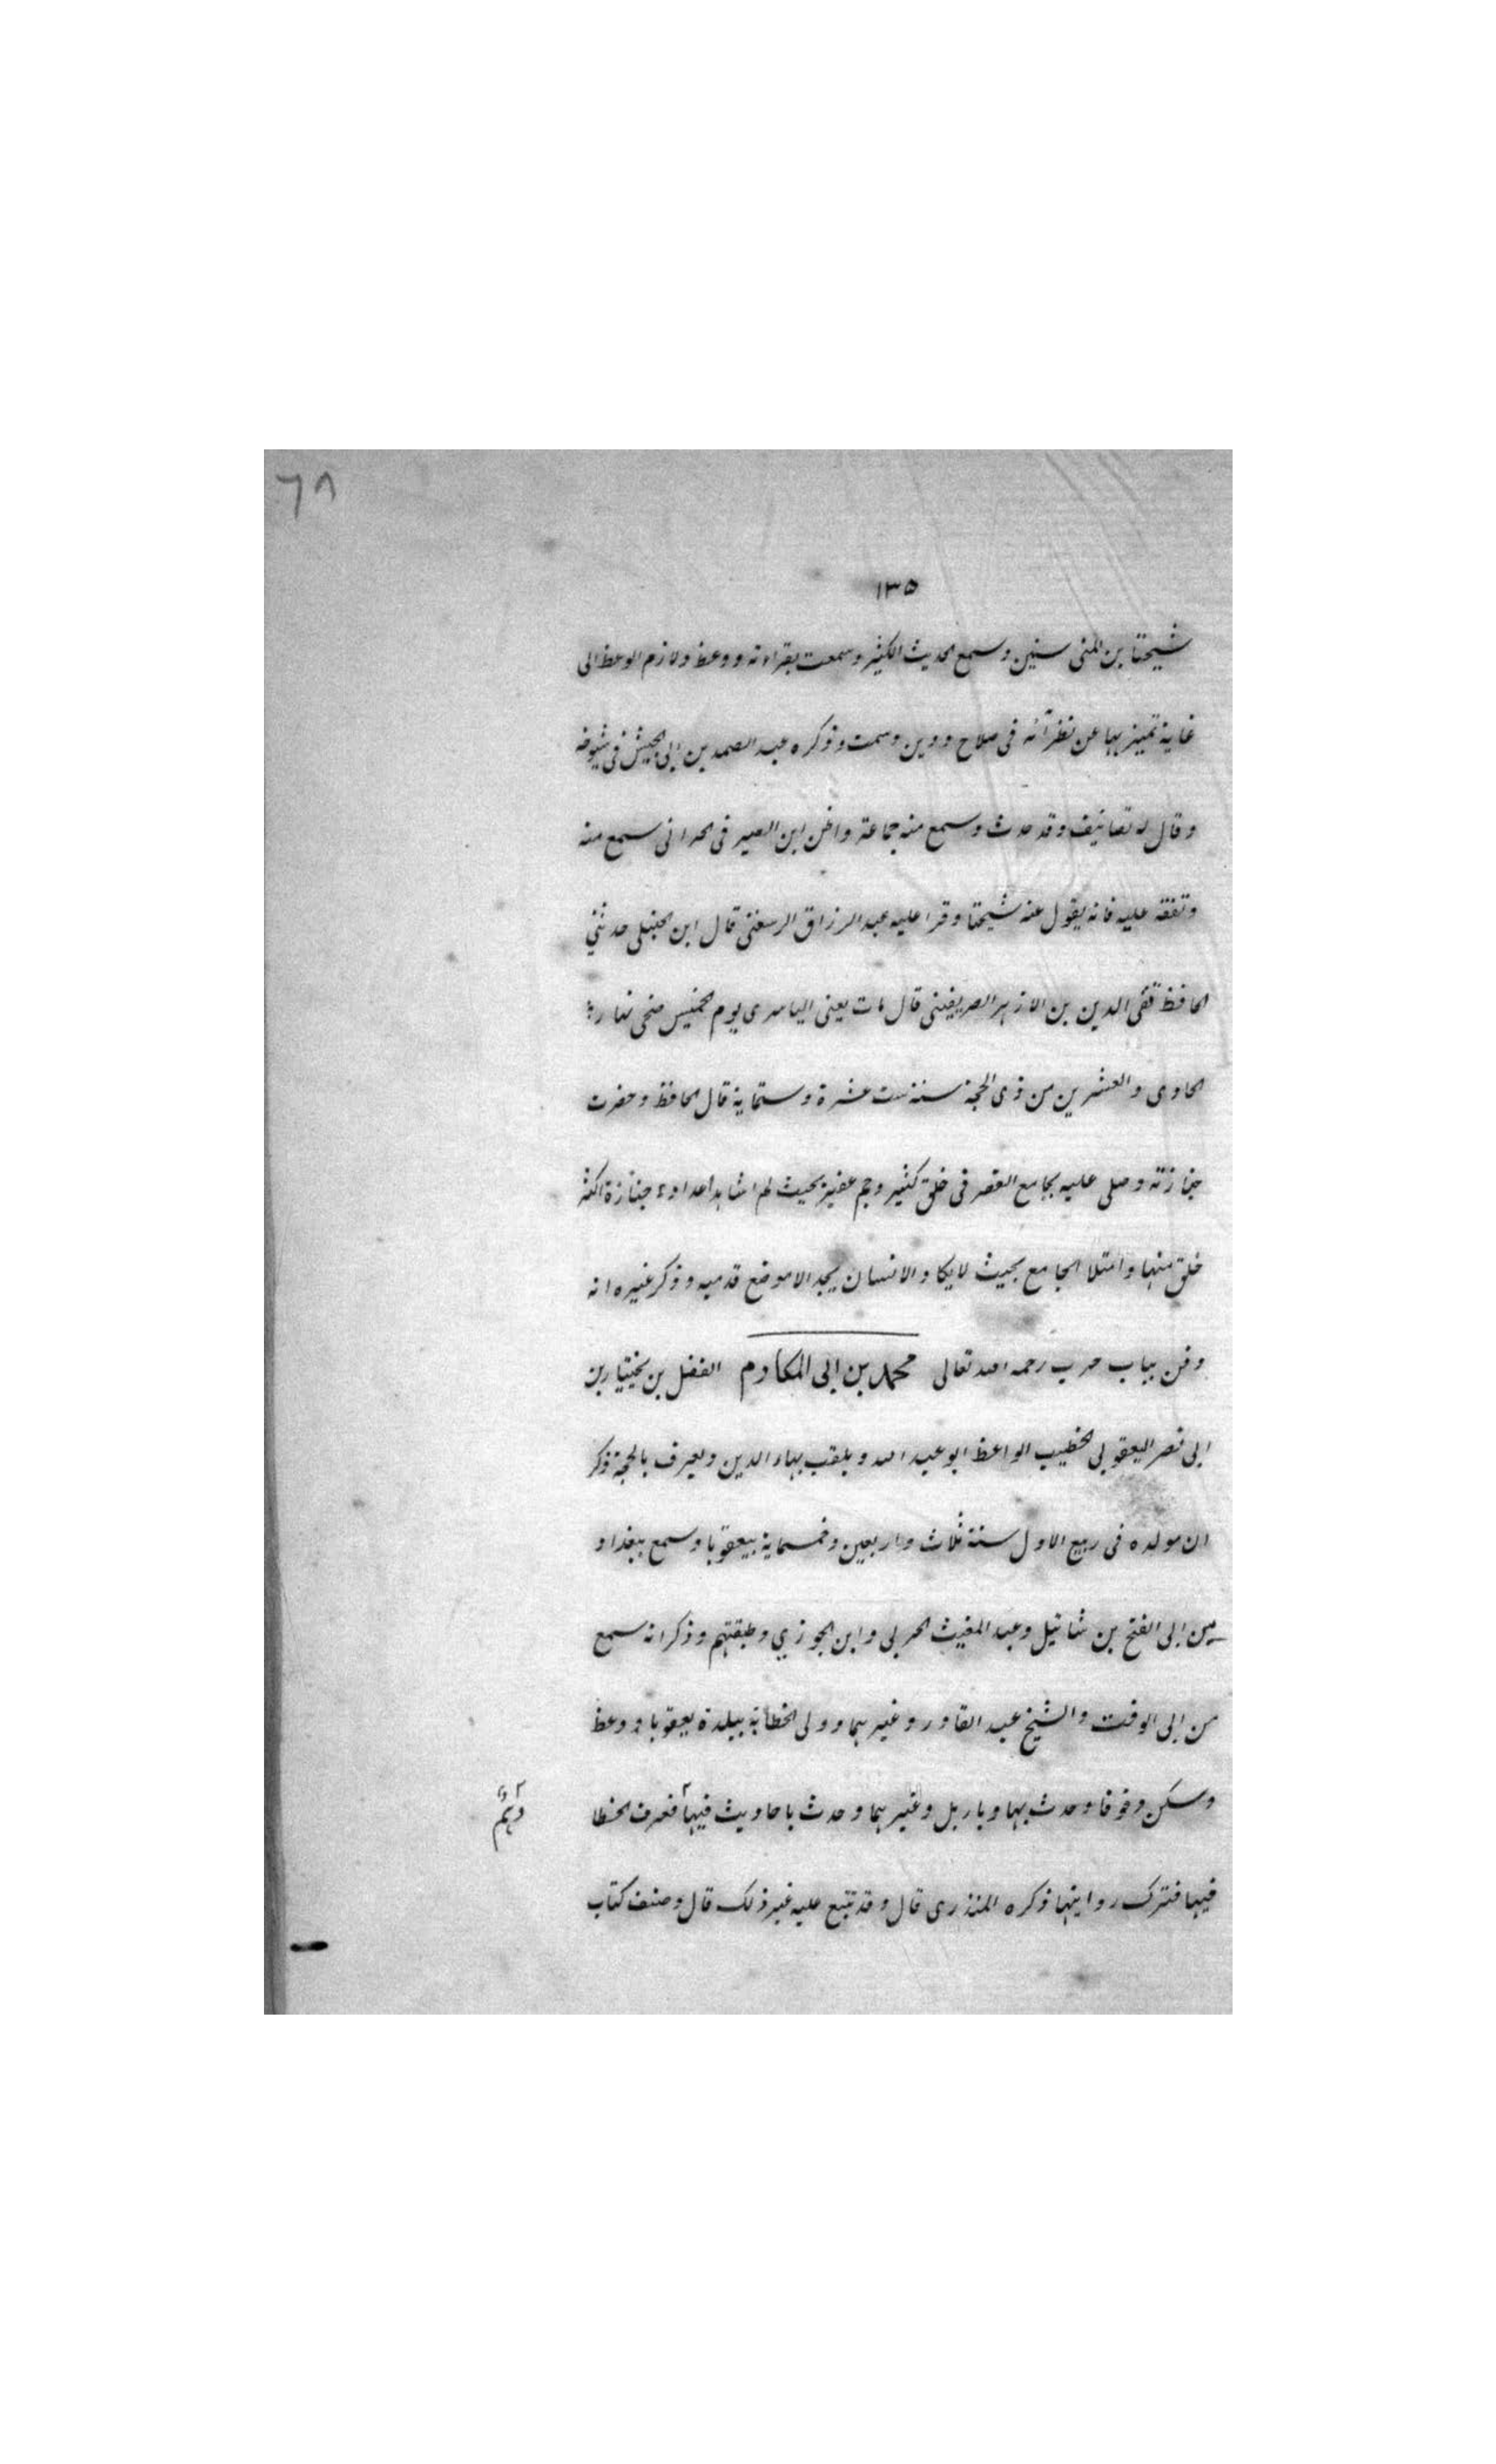 ٦٨
١٣٥
شيخنا بن المنى سنين وسمع الحديث الكثير وسمعت بقراءته ووعظ ولازم الوعظ الى
غاية تميز بها عن نظرآئه فى صلاح ودين وسمت وذكره عبد الصمد بن ابى الجيش فى شيوخه
وقال له تصانيف وقد حدث وسمع منه جماعة واظن ابن الصيرفى الحرانى سمع منه
وتفقه عليه فانه يقول عنه شيخنا وقرا عليه عبد الرزاق الرسعنى قال ابن الحنبلى حدثنى
الحافظ تقى الدين بن الازهر الصريفينى قال مات يعنى اليامدى يوم الخميس ضحى نهاره
الحادى والعشرين من ذى الحجة سنة ست عشرة وستماية قال الحافظ وحضرت
جنازته وصلى عليه بجامع القصر فى خلق كثير وجم غفير بحيث لم اشاهد اعداد جنازة اكثر
خلق منها وامتلا الجامع بحيث لا يكاد الانسان يجد الا موضع قدميه وذكر غيره انه
دفن بباب حرب رحمه الله تعالى محمد بن ابى المكارم الفضل بن بختيار بن
ابى نصر اليعقوبى الخطيب الواعظ ابو عبد الله ويلقب بهاء الدين ويعرف بالحجة ذكر
ان مولده فى ربيع الاول سنة ثلاث واربعين وخمسماية ببيعقوبا وسمع ببغداد
من ابى الفتح بن شاتيل وعبد المغيث الحربى وابن الجوزي وطبقتهم وذكر انه سمع
من ابى الوقت والشيخ عبد القادر وغيرهما وولى الخطابة ببلدة يعقوبا ووعظ
وسكن دقوقا وحدث بها وباربل وغيرهما وحدث باحاديث فيها فعرف الخطا
وَهْم
فيها فترك روايتها ذكره المنذرى قال وقد تتبع عليه غير ذلك قال وصنف كتاب